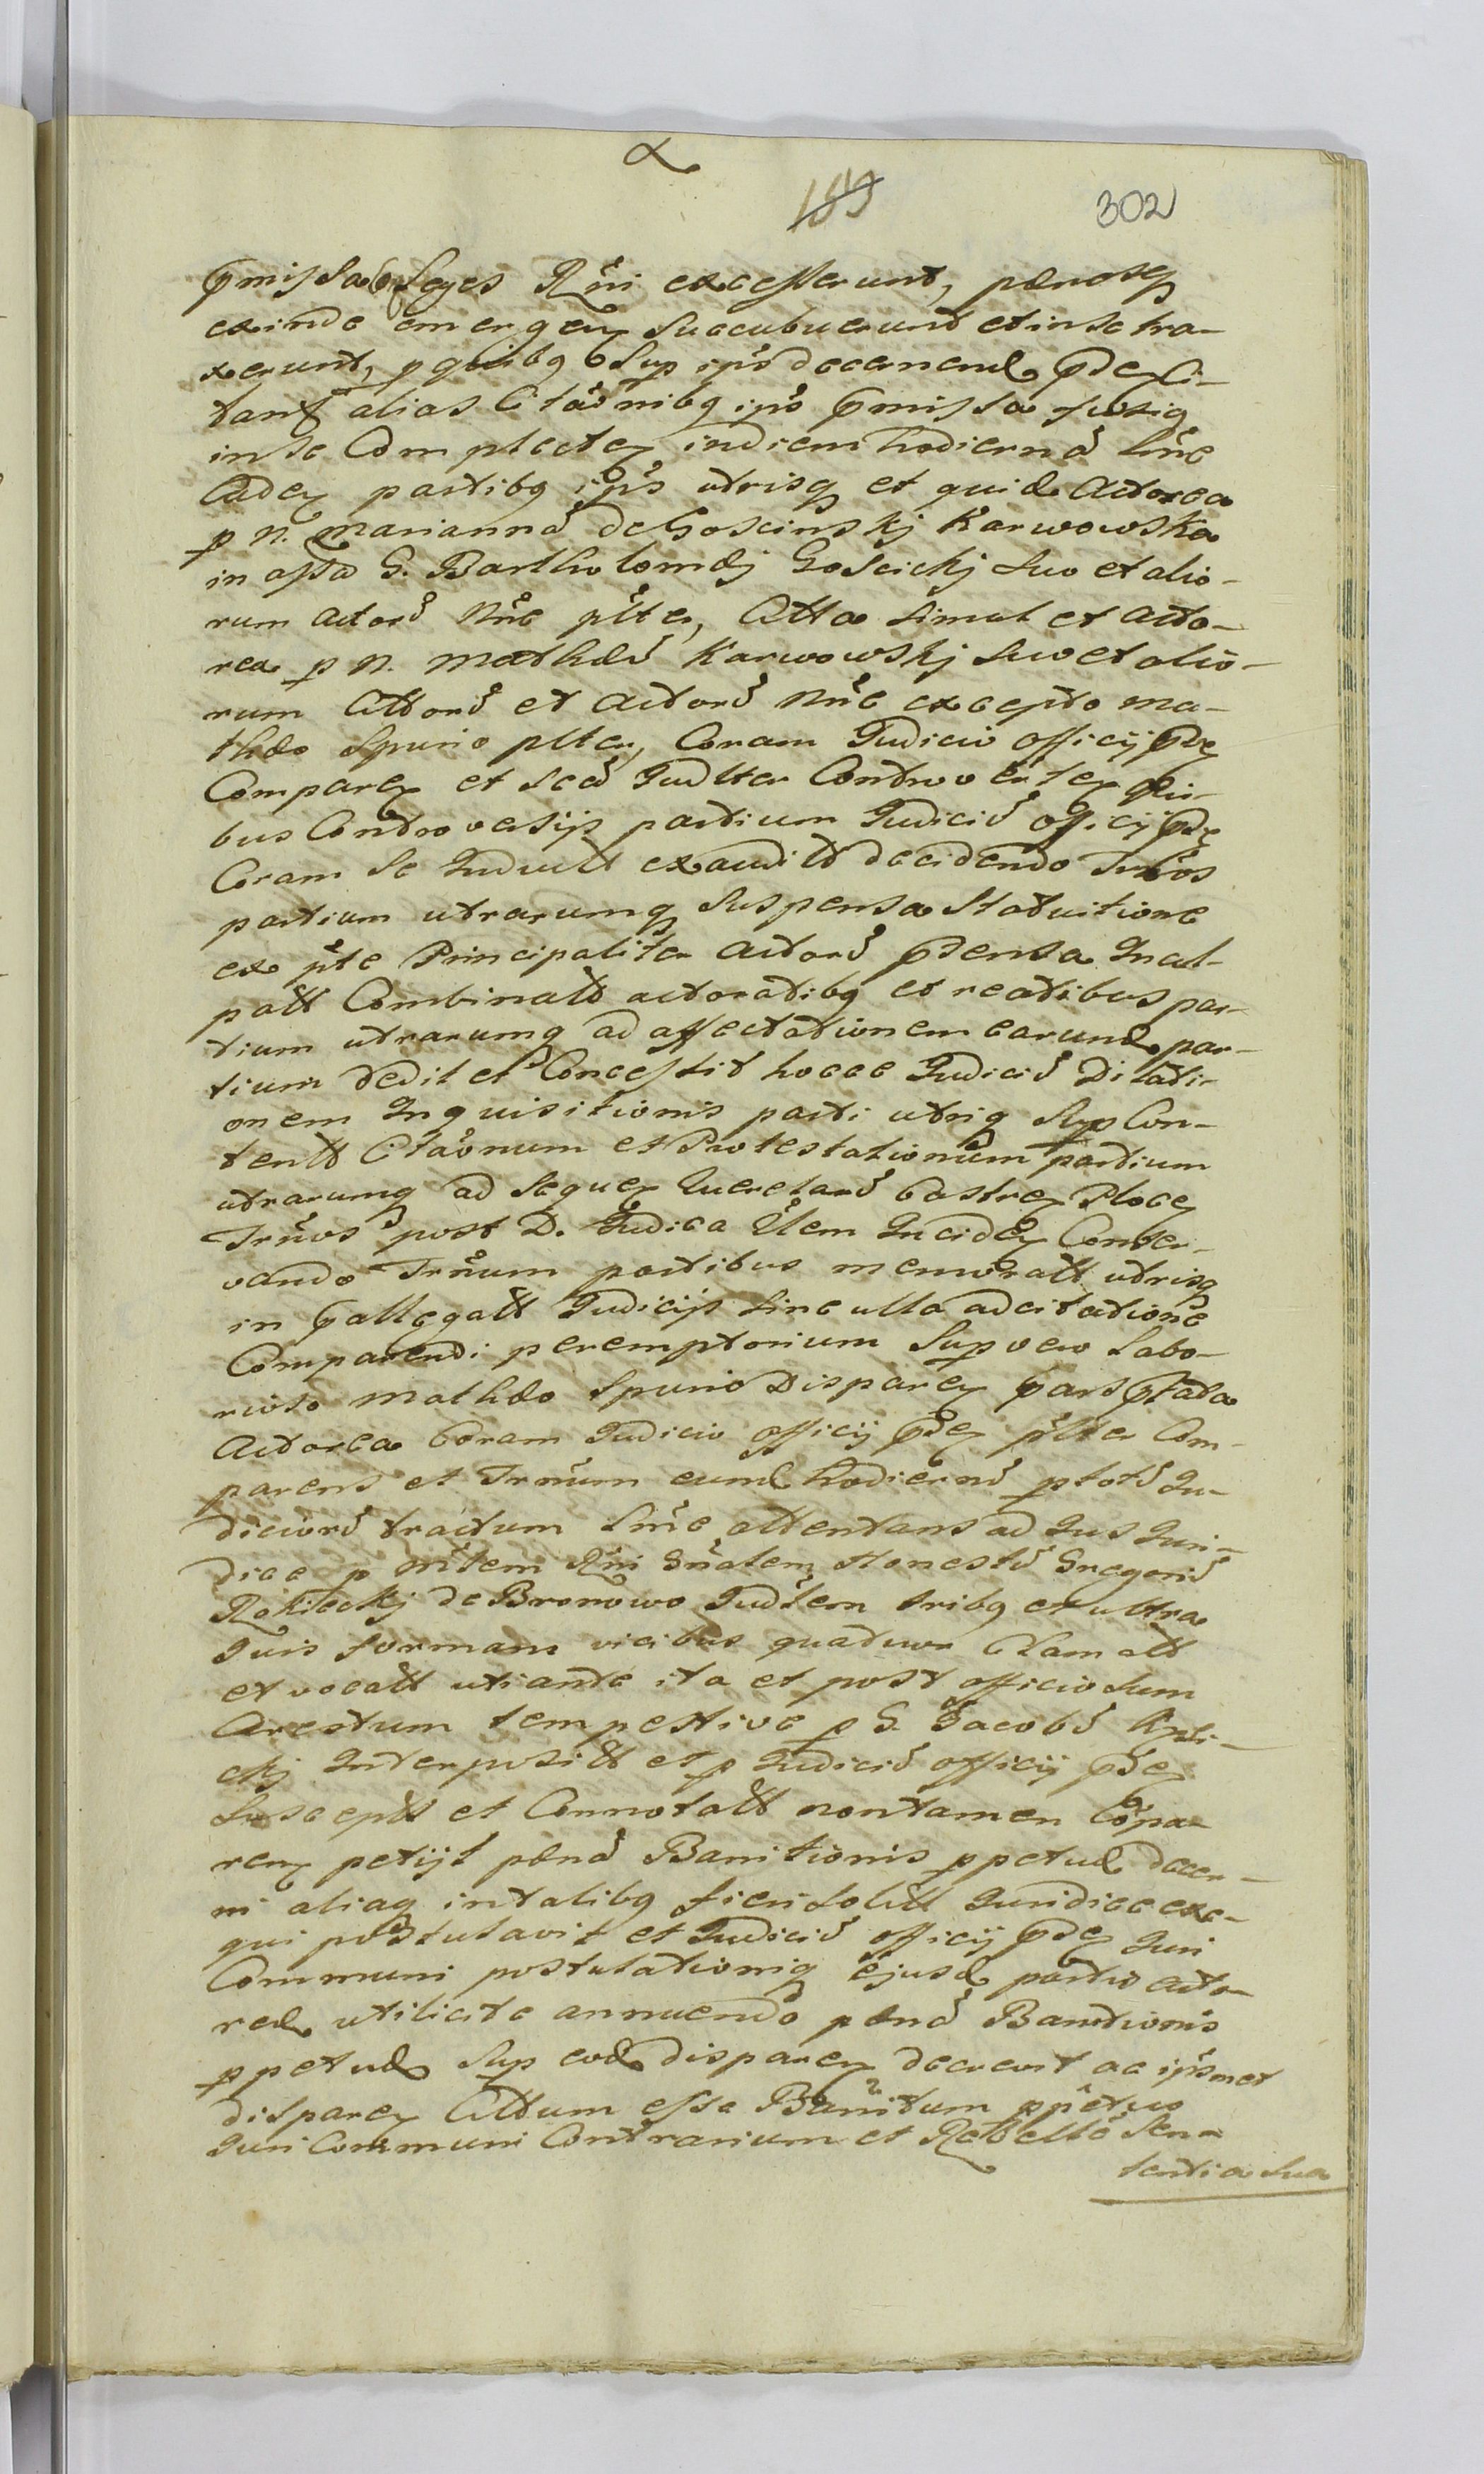 189
302
pmissaq Leges Rni excesserunt, penasq
exinde emergen succubuerunt et in se tra-
xerunt, p quibq Sup ipis decernend pdex Ci-
tant alias Citaonibq ipis pmissa fusiq
in se Complecten in diem hodierna
Caden partibq ipis utrisq et quid Actorea
p N. Marianna de Goscinskj Karwowska
in assa G. Bartholomæj Goscickj suo et alio-
rum actorū nne plter, Citta simul et acto-
rea p N. Mathæū Karwowskj suo et alio-
rum Cittorū et Actorū nne excepto Ma-
thæo Spurio plter, Coram Judicio officij pde
Comparen et sed Judlter Controverten
bus Controversijs partium Judiciū officij pde
Coram se Induett exaudītt decidendo
partium utrarumq suspensa Statuitione
ex pte Principaliter actorū Incul-
patt Combinatt actoratibq et reatibus par-
tium utrarumq ad affectationem earund par-
tium dedit et Concessit hocce Judiciū Dilati-
onem Inquisitionis parti utriq Sup Con-
tentt Citaonum et Protestationum partium
utrarumq ad sequen Querelarū Castren Plocen
Trnos post D. Judica Incidēn Conser-
vando Trnum partibus memoratt utrisq
in pallegatt Judicijs sine ulla adcitatione
Comparendi peremptorium Sup vero Labo-
rioso Mathæo Spurio Disparen pars ptata
Actorea Coram Judicio officij pde plter Com-
parens et Trnum eund hodiernū p totū Ju-
diciorū tractum sine attentans ad Jus Juri-
dice p Mtem Rni Gnalem Honestū Gregoriū
Rokickj de Bronowo Judlem tribq et ultra
Juris formam vicibus quatuor clamatt
et vocatt uti ante ita et post officiosum
Arestum tempestive p G. Jacobū
ckj Interposītt et p Judiciū officij pde
susceptt et Connotatt non tamen Cōpa-
ren petijt pena Banitionis ppetuæ decer-
ni aliaq in talibq fieri solitt Juridice exe-
qui postulavit et Judiciū officij pde Juri
Communi postulationiq ejusd partis acto-
reæ utilicite annuendo pena Banitionis
ppetuæ Sup eod disparen decrevit ac ipsmet
disparen Cittum esse Banitum ppetuo
Juri Communi Contrarium et Rebelle Sen-
tentia sua